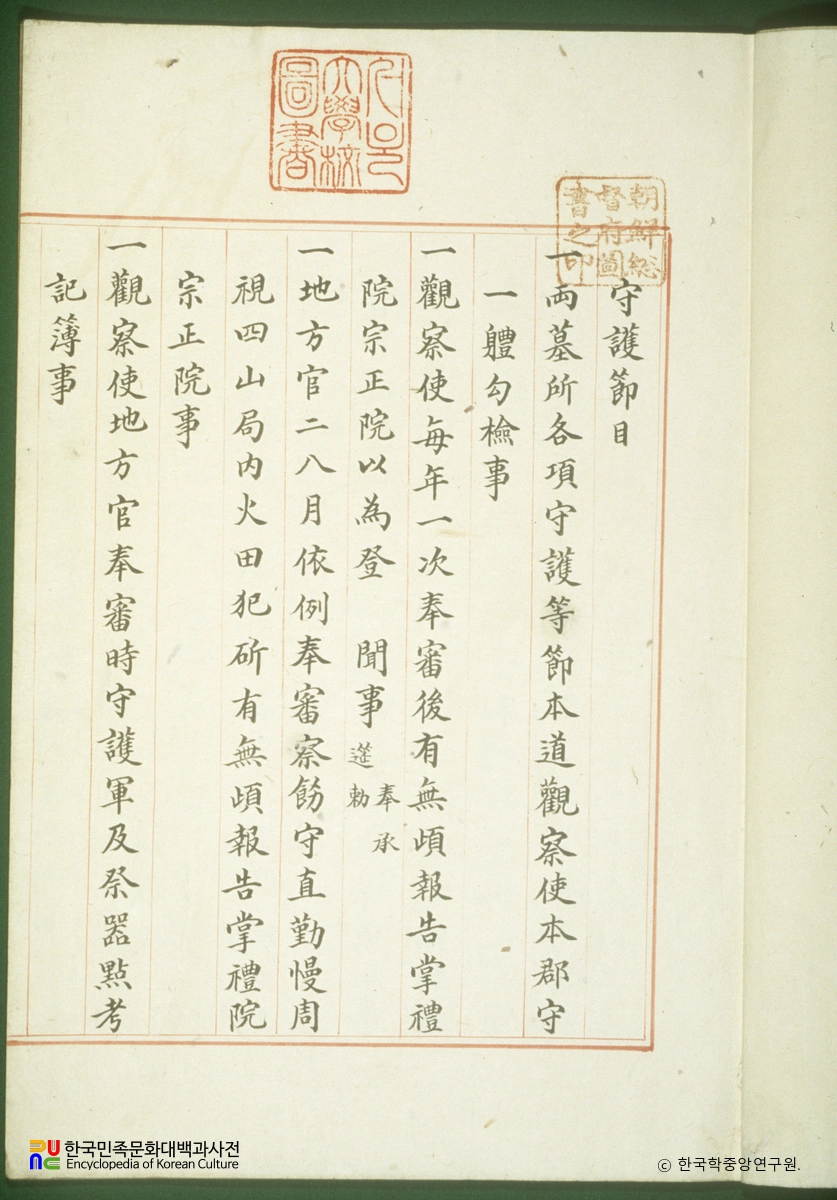 서울大學校圖書
朝鮮総督府圖書之印
守護節目
一両墓所各項守護等節本道觀察使本郡守
一軆勾檢事
一觀察使每年一次奉審後有無頉報告掌禮
院宗正院以為登 聞事 奉承
遵勅
一地方官二八月依例奉審察飭守直勤慢周
視四山局内火田犯斫有無頉報告掌禮院
宗正院事
一觀察使地方官奉審時守護軍及祭器點考
記簿事
한국민족문화대백과사전
Encyclopedia of Korean Culture
© 한국학중앙연구원.